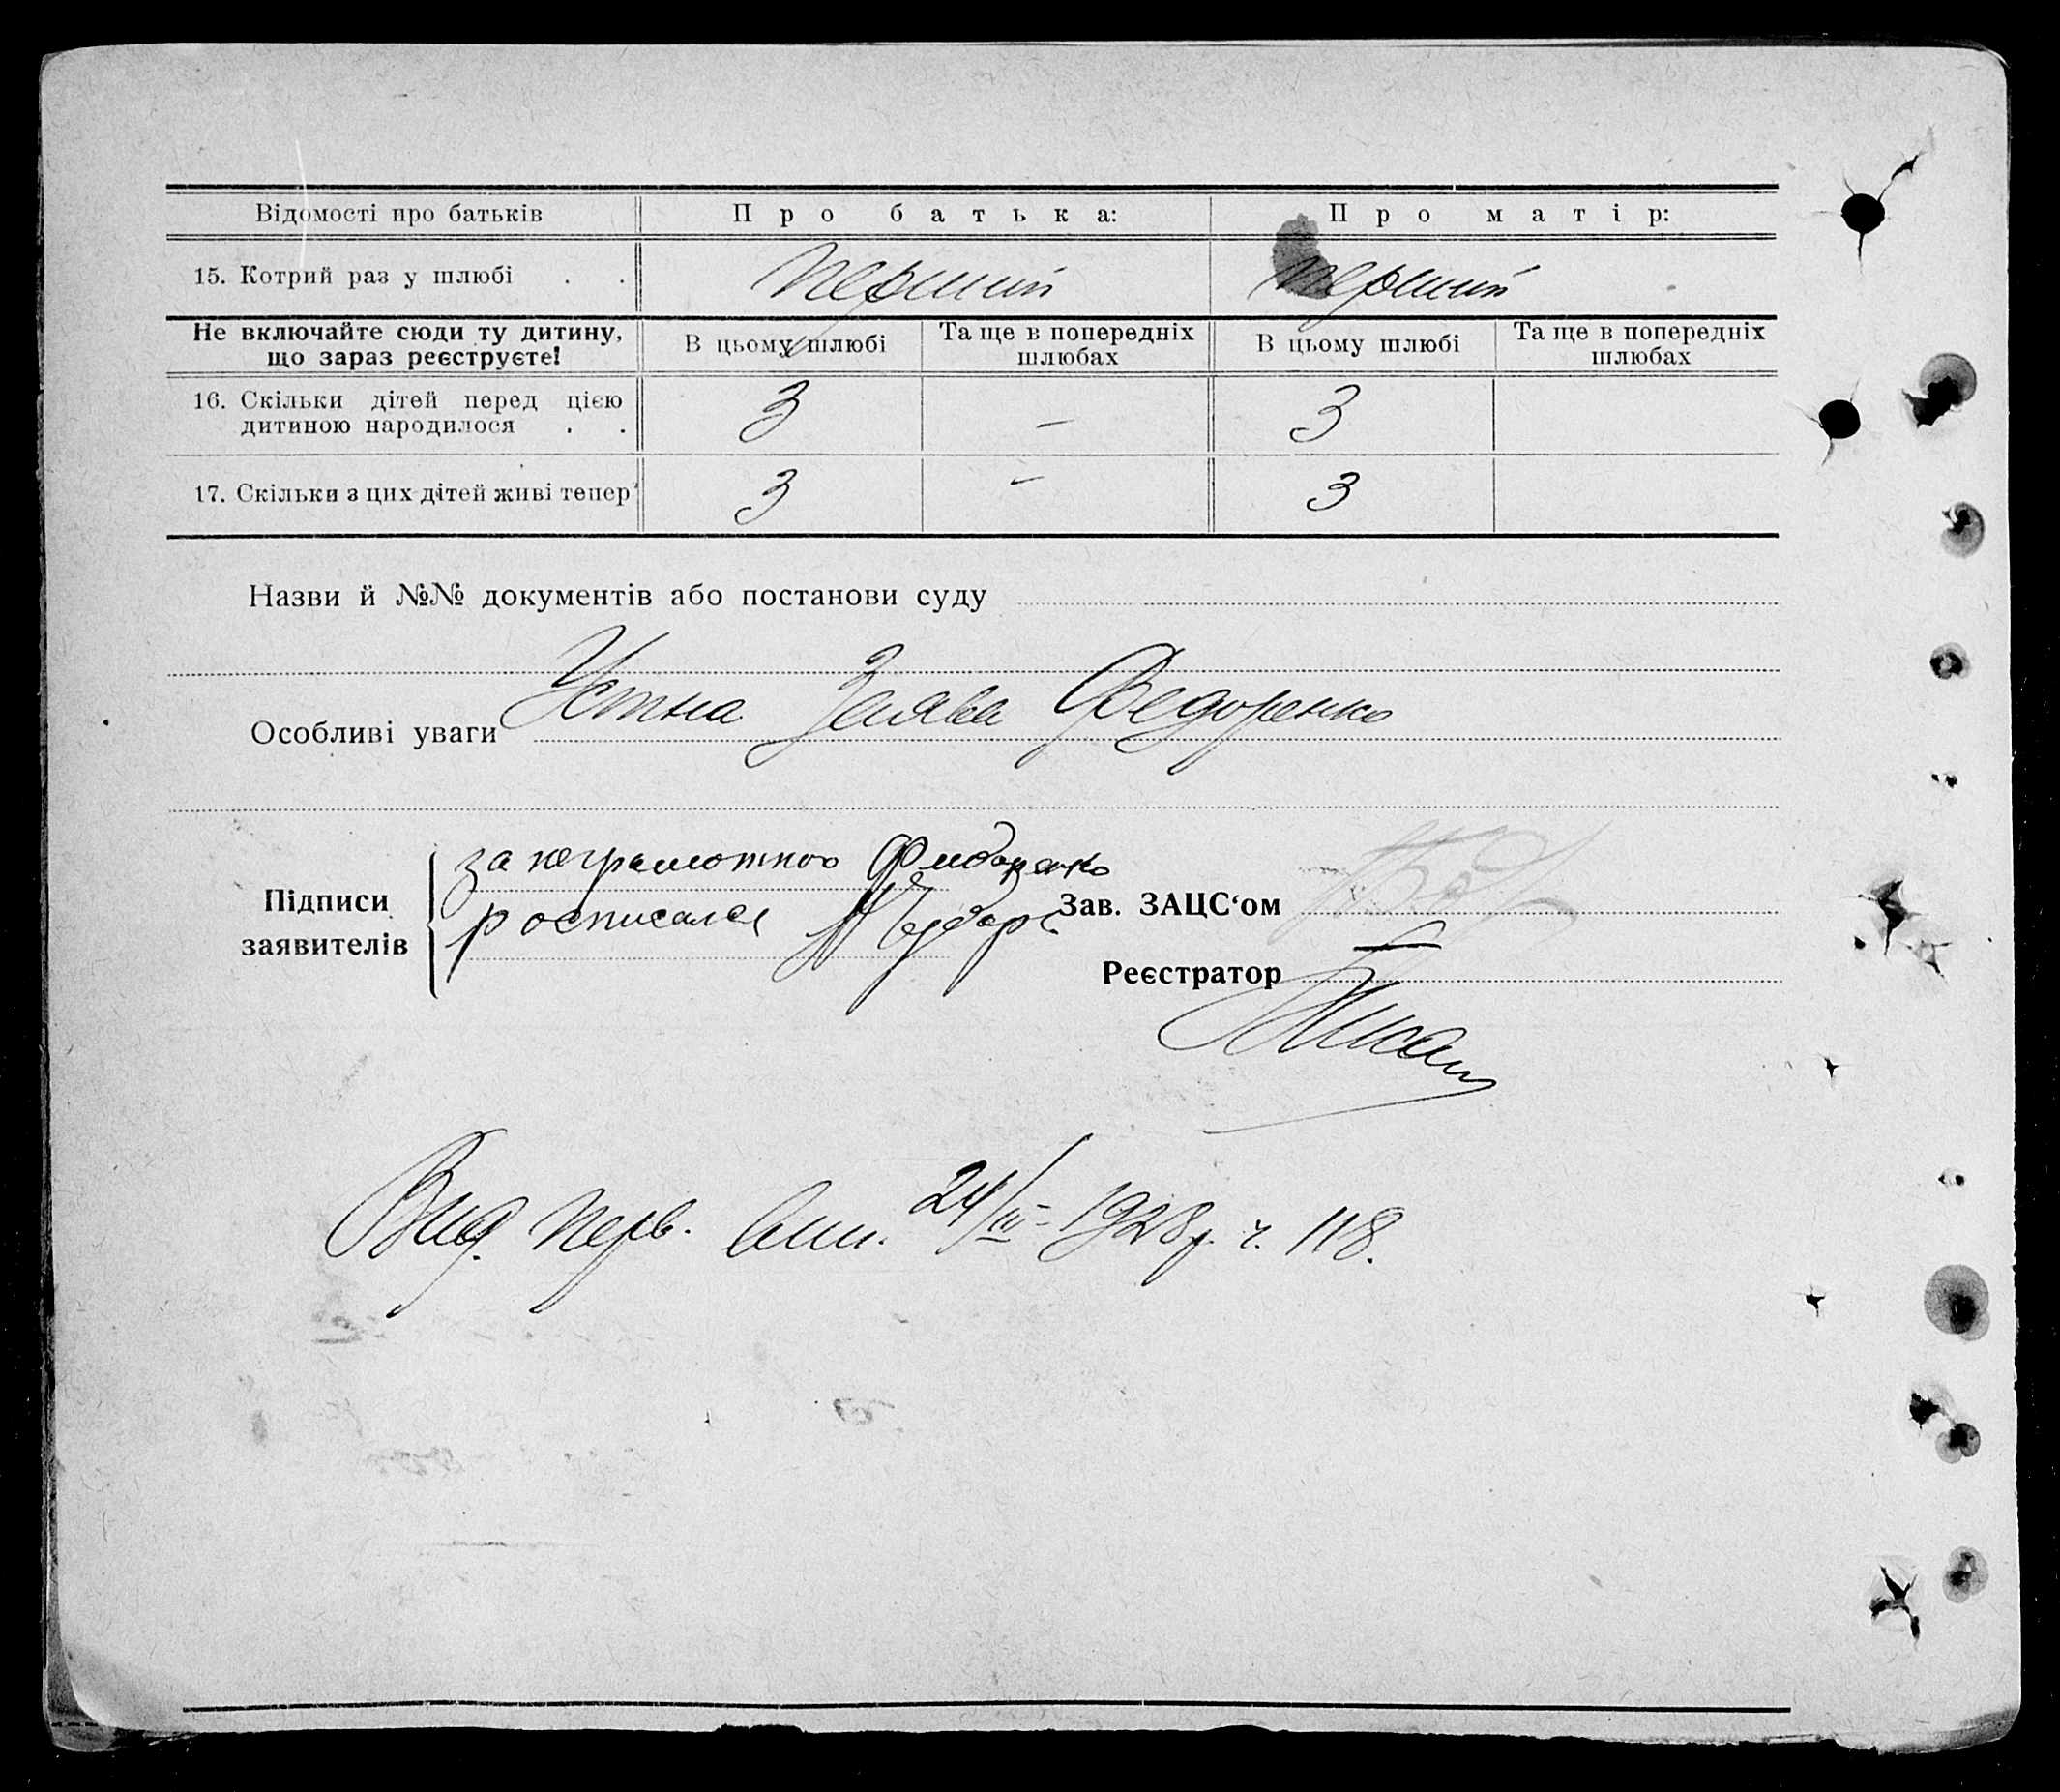 Відомості про батьків Про батька: Про матір:
15. Котрий раз у шлюбі . . перший перший
Не включайте сюди ту дитину, що зараз реєструєте! В цьому шлюбі Та ще в попередніх шлюбах В цьому шлюбі Та ще в попередніх шлюбах
16. Скільки дітей перед цією дитиною народилося . . 3 – 3
17. Скільки з цих дітей живі тепер 3 – 3
Назви й №№ документів або постанови суду
Устна Заява Федоренко
Особливі уваги
Підписи заявителів
за неграмотного
росписался
Зав. ЗАЦС‘ом
Реєстратор
Вид. перв. вип. 24/III – 1928 р. ч. 118.